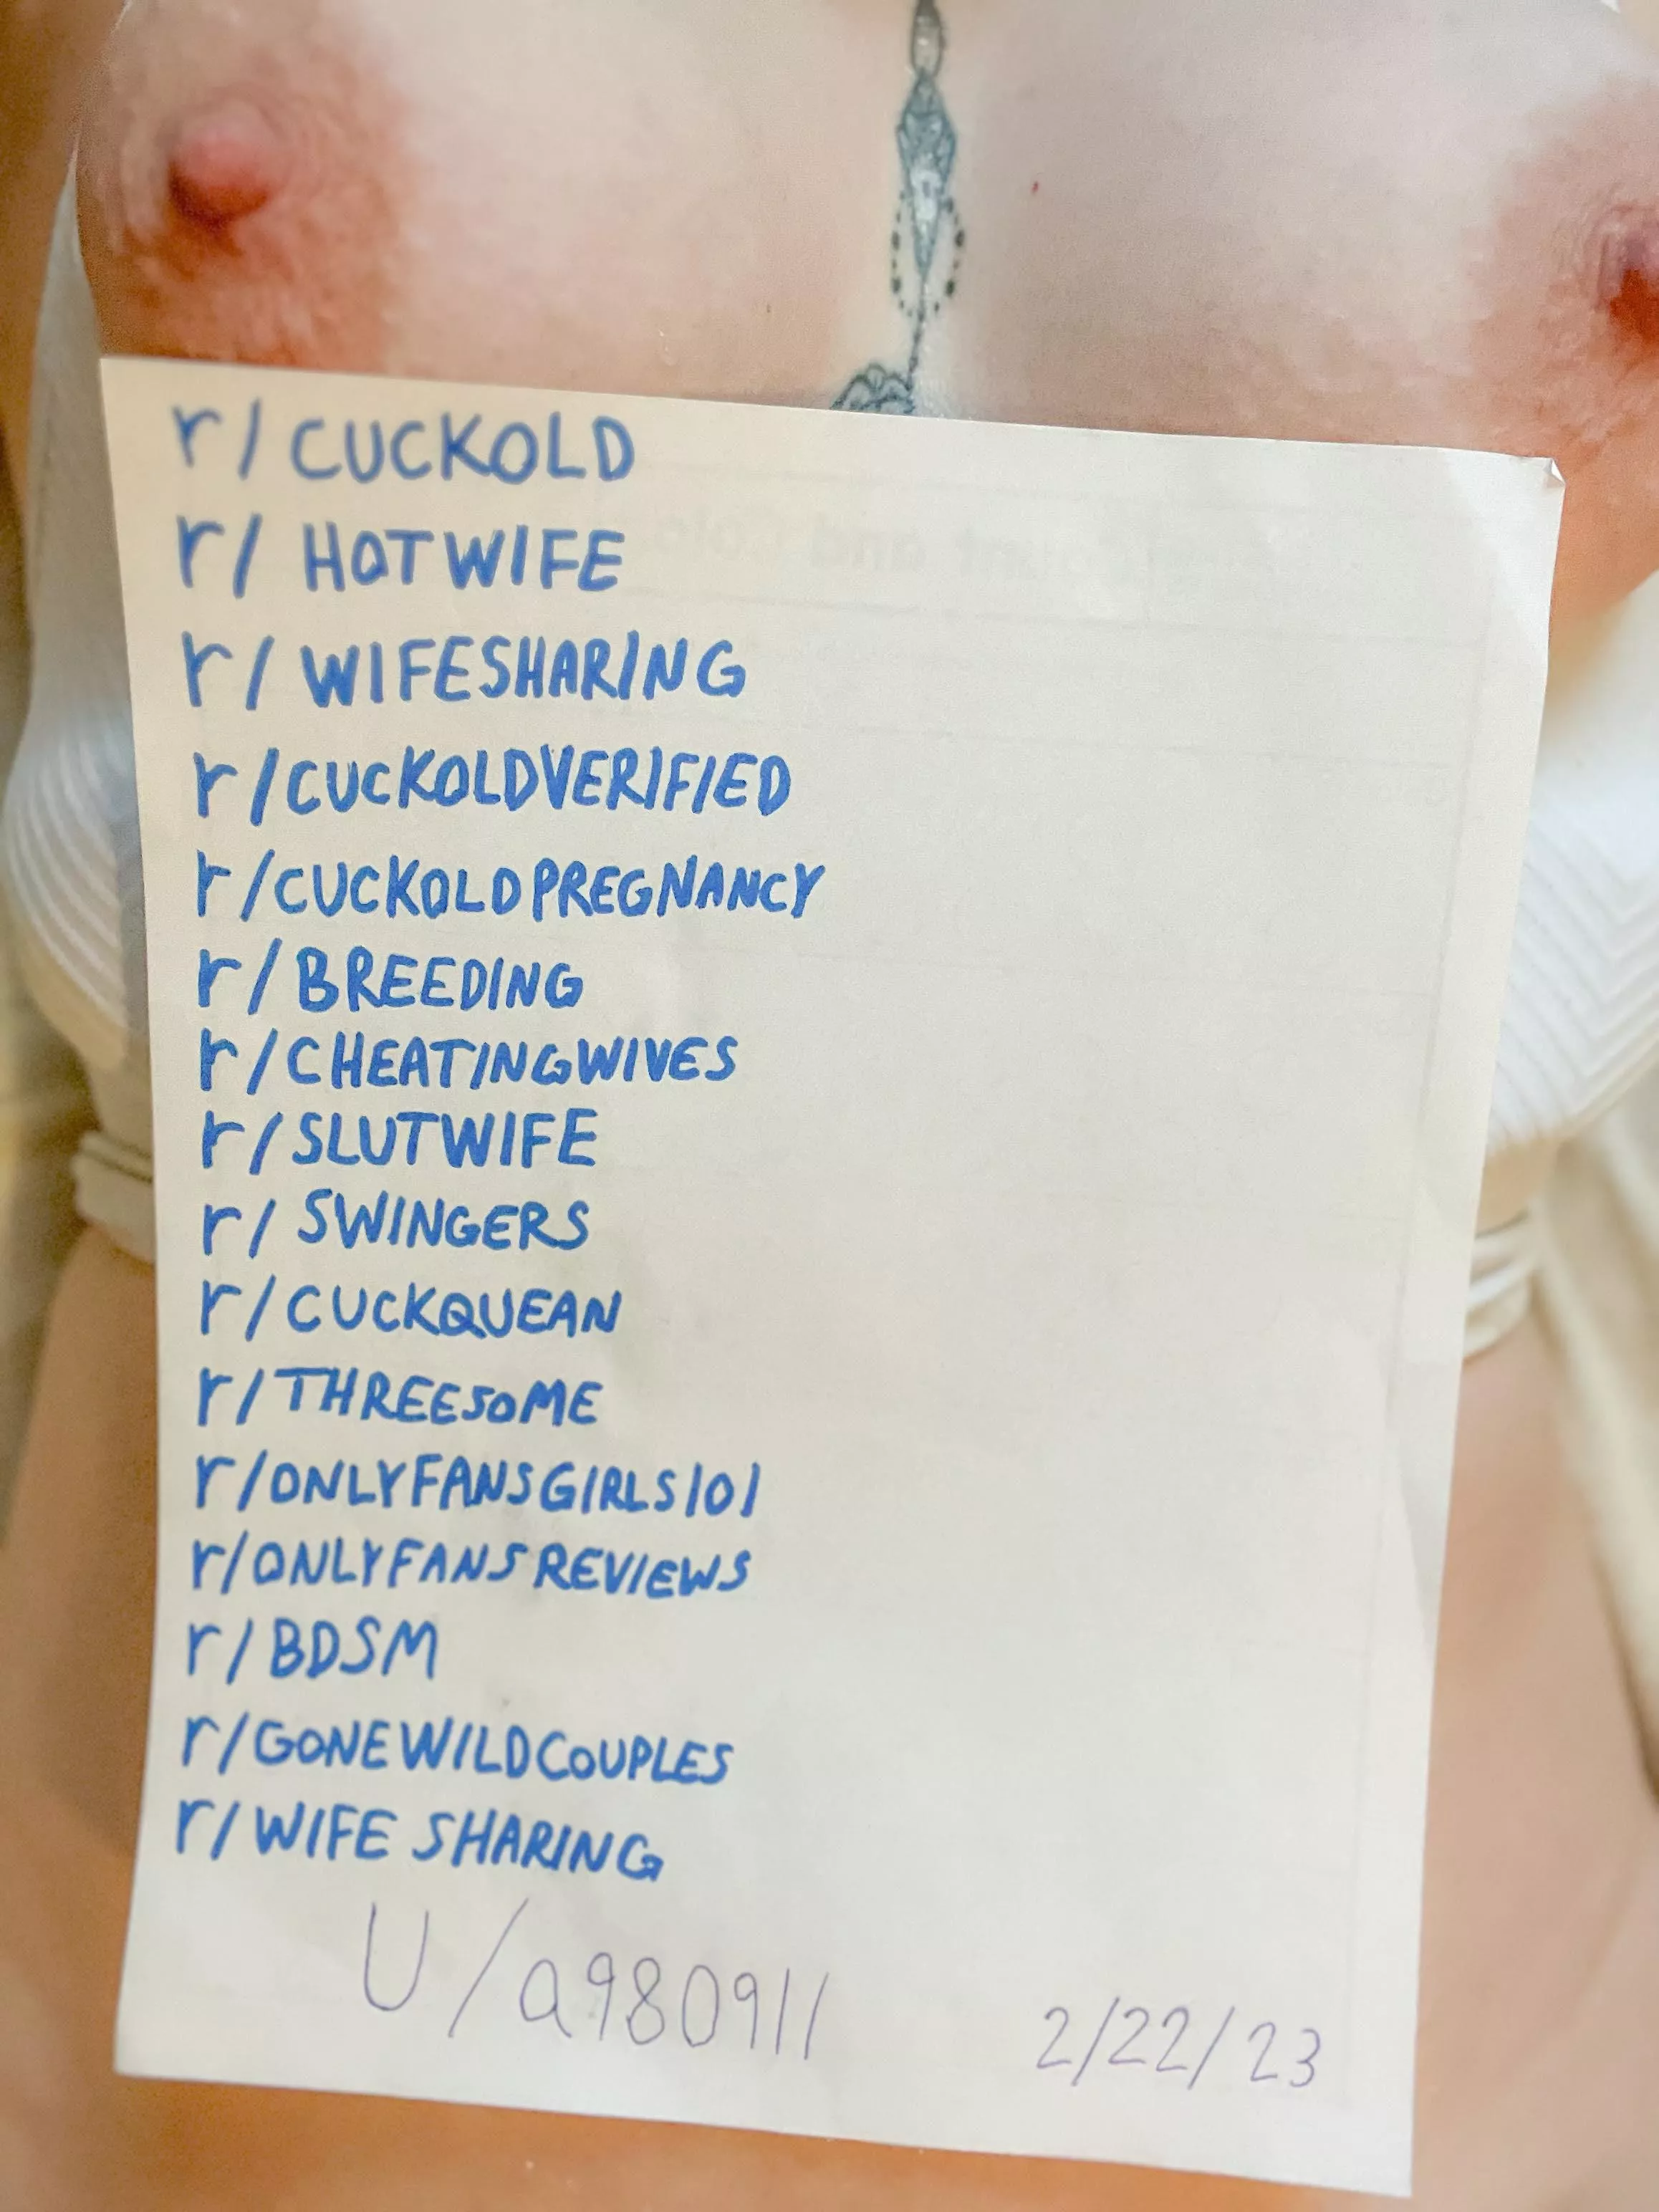 r/CUCKOLD
r/ HOTWIFE
r/ WIFESHARING
r/CUCKOLDVERIFIED
r/CUCKOLDPREGNANCY
r/BREEDING
r/CHEATINGWIVES
r/SLUTWIFE
r/ SWINGERS
r/CUCKQUEAN
r/THREESOME
r/ONLYFANSGIRLS101
r/ONLYFANSREVIEWS
r/BDSM
r/GONEWILDCOUPLES
r/WIFE SHARING
U/a980911
2/22/23